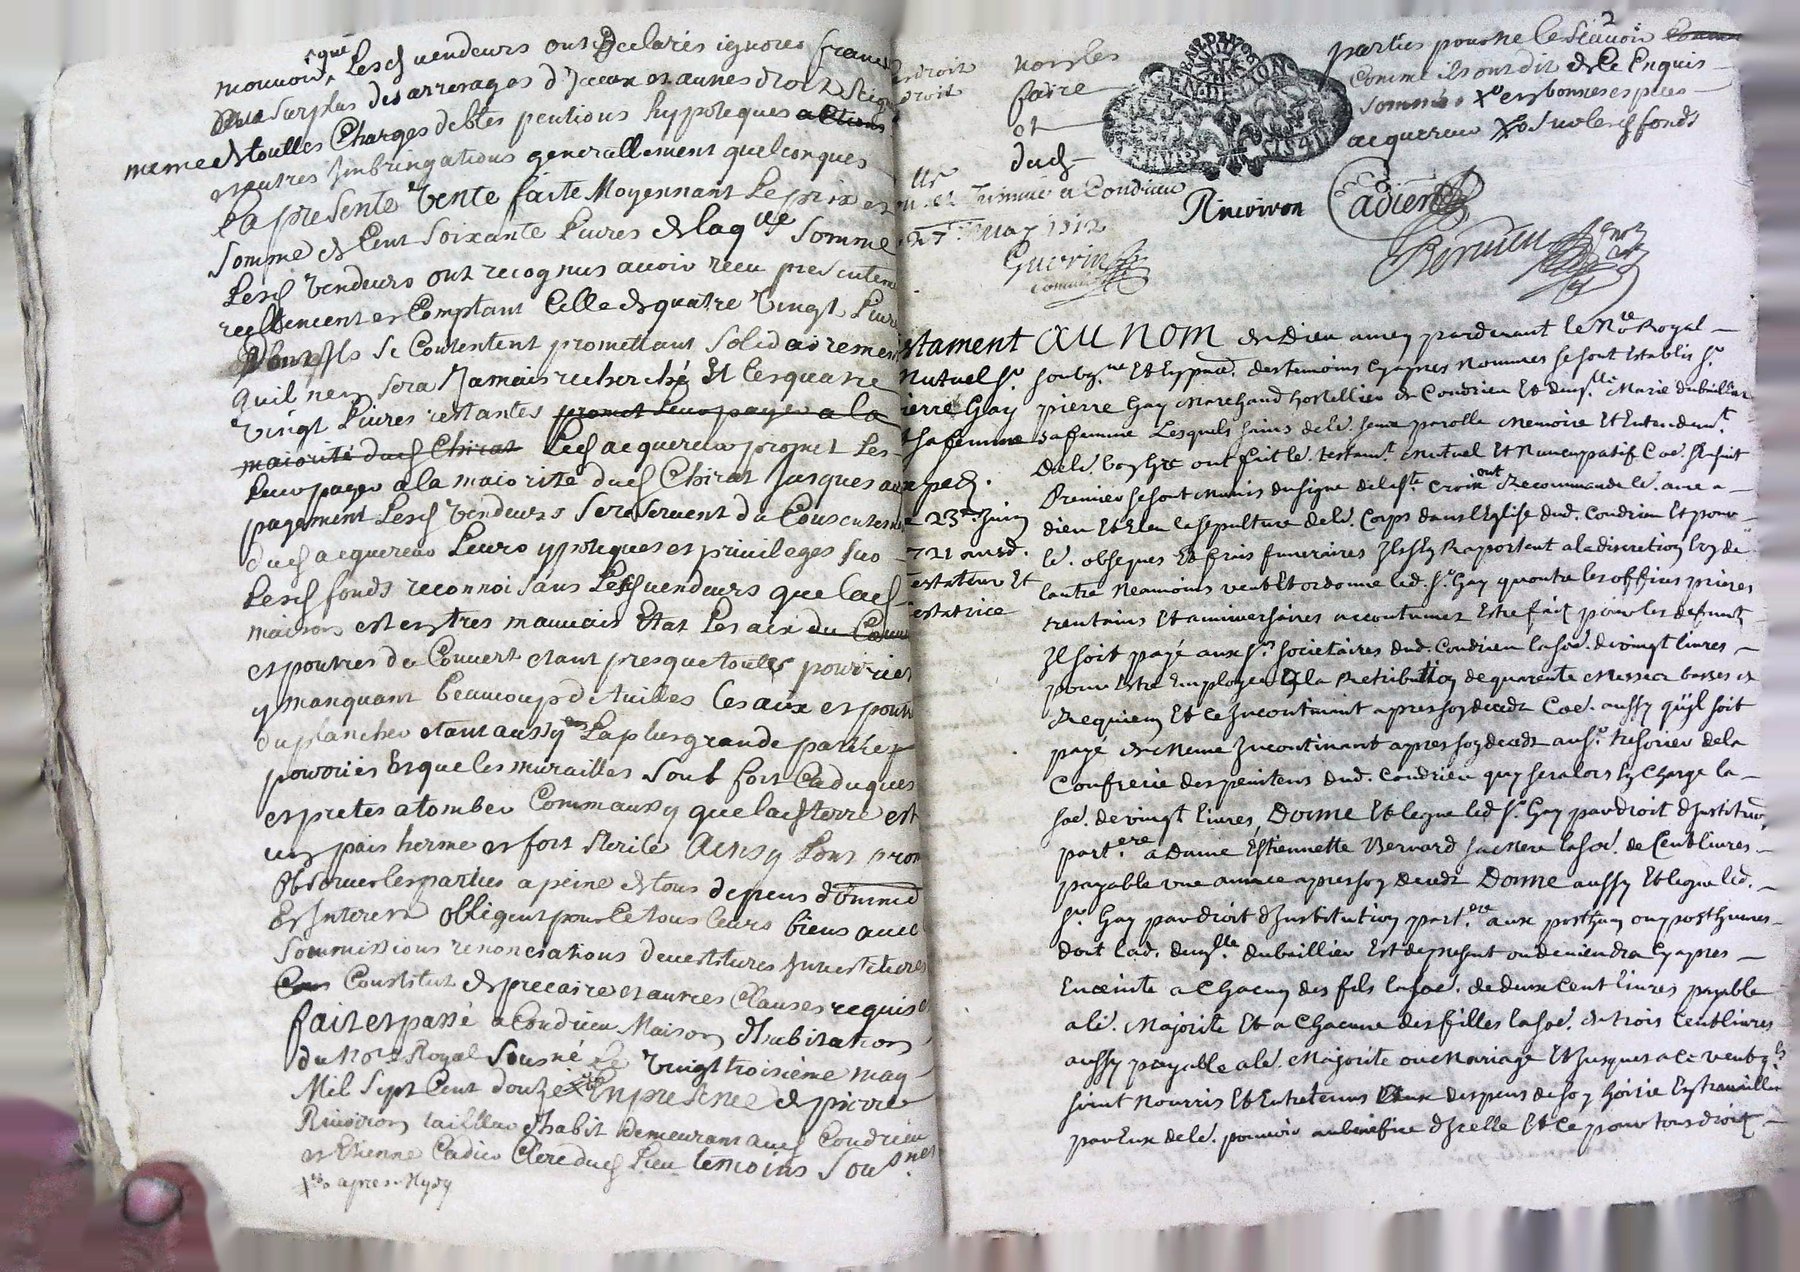 mouvoir, Lesd vendeurs ont declarés ignorer franc
du Surplus des arrerages d'Iceux et autres droit Seig
meme de touttes Charges debtes pentions hyppoteques
et autres Imbringations generallement quelconques
La presente Vente faite Moyennant Le prix et
Somme de Cent Soixante Livres de laqlle Somme
Lesd Vendeurs ont recognus avoir receu presentemen
reellement et Comptant Celle de quatre Vingt Livre
Dont Ils Se Contentent promettant Solidairement
qu'il n'en Sera Jamais recherché Et Les quatre
Vingt Livres restantes promet Leur payer a la
maiorité dud Chirat Led acquereur promet Les
Leur payer a la maiorité dud Chirat Jusques au
payement Lesd Vendeurs Se reServent du Consentem
dud acquereur Leurs ypoteques et privileges Sur
Lesd fonds reconnoisans Lesd vendeurs que Lad
maison est en tres mauvais Etat Les aix du Couv
et poutres du Couvert etant presque toutes pourries
y manquant beaucoup de tuilles Les aix et poutr
du plancher etant aussy La plus grande partie
pourries Et que les murailles Sont fort Caduques
et pretes a tomber Comm aussy que lad terre est
un pais herme et fort Sterile Ainsy L'ont prom
Observer les parties a peine de tous depens domm
Et Interest obligent pour Ce tous Leurs biens avec
Sommissions renonciations devestitures Investitures
Constitut de precaire et autres Clauses requis
fait et passé a Condrieu Maison d'habitation
du Nore Royal Sousné Le Vingt troisieme may
Mil Sept Cent douze En presence de pierre
Rinviron tailleur d'habit demeurant aud Condrieu
et Etienne Cadier Clerc dud Lieu temoins Sousnes
apres Mydy
parties pour ne le Scavoir
Comme ils ont dit de Ce Enquis
Sommés Xo en bonnes espces
acquereur Xo Sur lesd fonds
faire
et
dud
a Condrieu
27 May 1712
Guerin
Rinviron Cadier
GEN DE LYON
testament
Mutuel Sr
pierre Gay
et sa femme
exped.
Le 23e Juin
1721 aud.
testateur Et
testatrice
AU NOM de Dieu amen pardevant le Nore Royal
soubzne Et En pnce des temoins Cyapres Nommes se sont Establis Sr
pierre Gay Marchand hostellier de Condrieu Et demslle Marie dubaillier
sa femme Lesquels sains de Ls. sens parolle Memoire Et Entendemt
de Ls. bon gre ont fait Ls. testamt Mutuel Et Nuncupatif
Premier se sont Munis du signe de la ste Croix ont Recommande Ls. ame a
dieu Et Eleu la sepulture de Ls. Corps dans l'Eglise dud. Condrieu Et pour
Ls. obseques Et frais funeraires Ils s'en Raportent a la discretion l'un de
lautre Neamoins veut Et ordonne led. Sr Gay quoutre les offices prieres
trentains Et anniversaires accoutumez Estre fait pour les defunts
Il soit payé aux Srs societaires dud. Condrieu la soe. de vingt livres
pour Estre Employee A la Retribution de quarente Messes basses de
Requiem Et ce Incontinant apres son decedz Coe. aussy qu'il soit
payé de Meme Incontinant apres son decedz au Sr tresorier de la
Confrerie des penitens dud. Condrieu quy sera lors En Charge la
soe. de vingt livres, Donne Et legue led Sr Gay par droit d'Institution
partere a Dame Estiennette Bernard sa Mere la soe. de Cent livres
payable une année apres son decedz Donne aussy Et legue led.
Sr Gay par droit d'Institution partere aux posthum ou posthumes
dont lad. demslle dubaillier Est de present ou deviendra Cy apres
Enceinte a Chacun des fils la soe. de deux Cent livres payable
a Ls. Majorite Et a Chacune des filles la soe. de trois Cent livres
aussy payable a Ls. Majorite ou Mariage Et Jusques a ce veut qls
soient Nourris Et Entretenus aux despens de son hoirie En travaillant
par Eux de Ls. pouvoir au benefice d'Icelle Et Ce pour tous droits